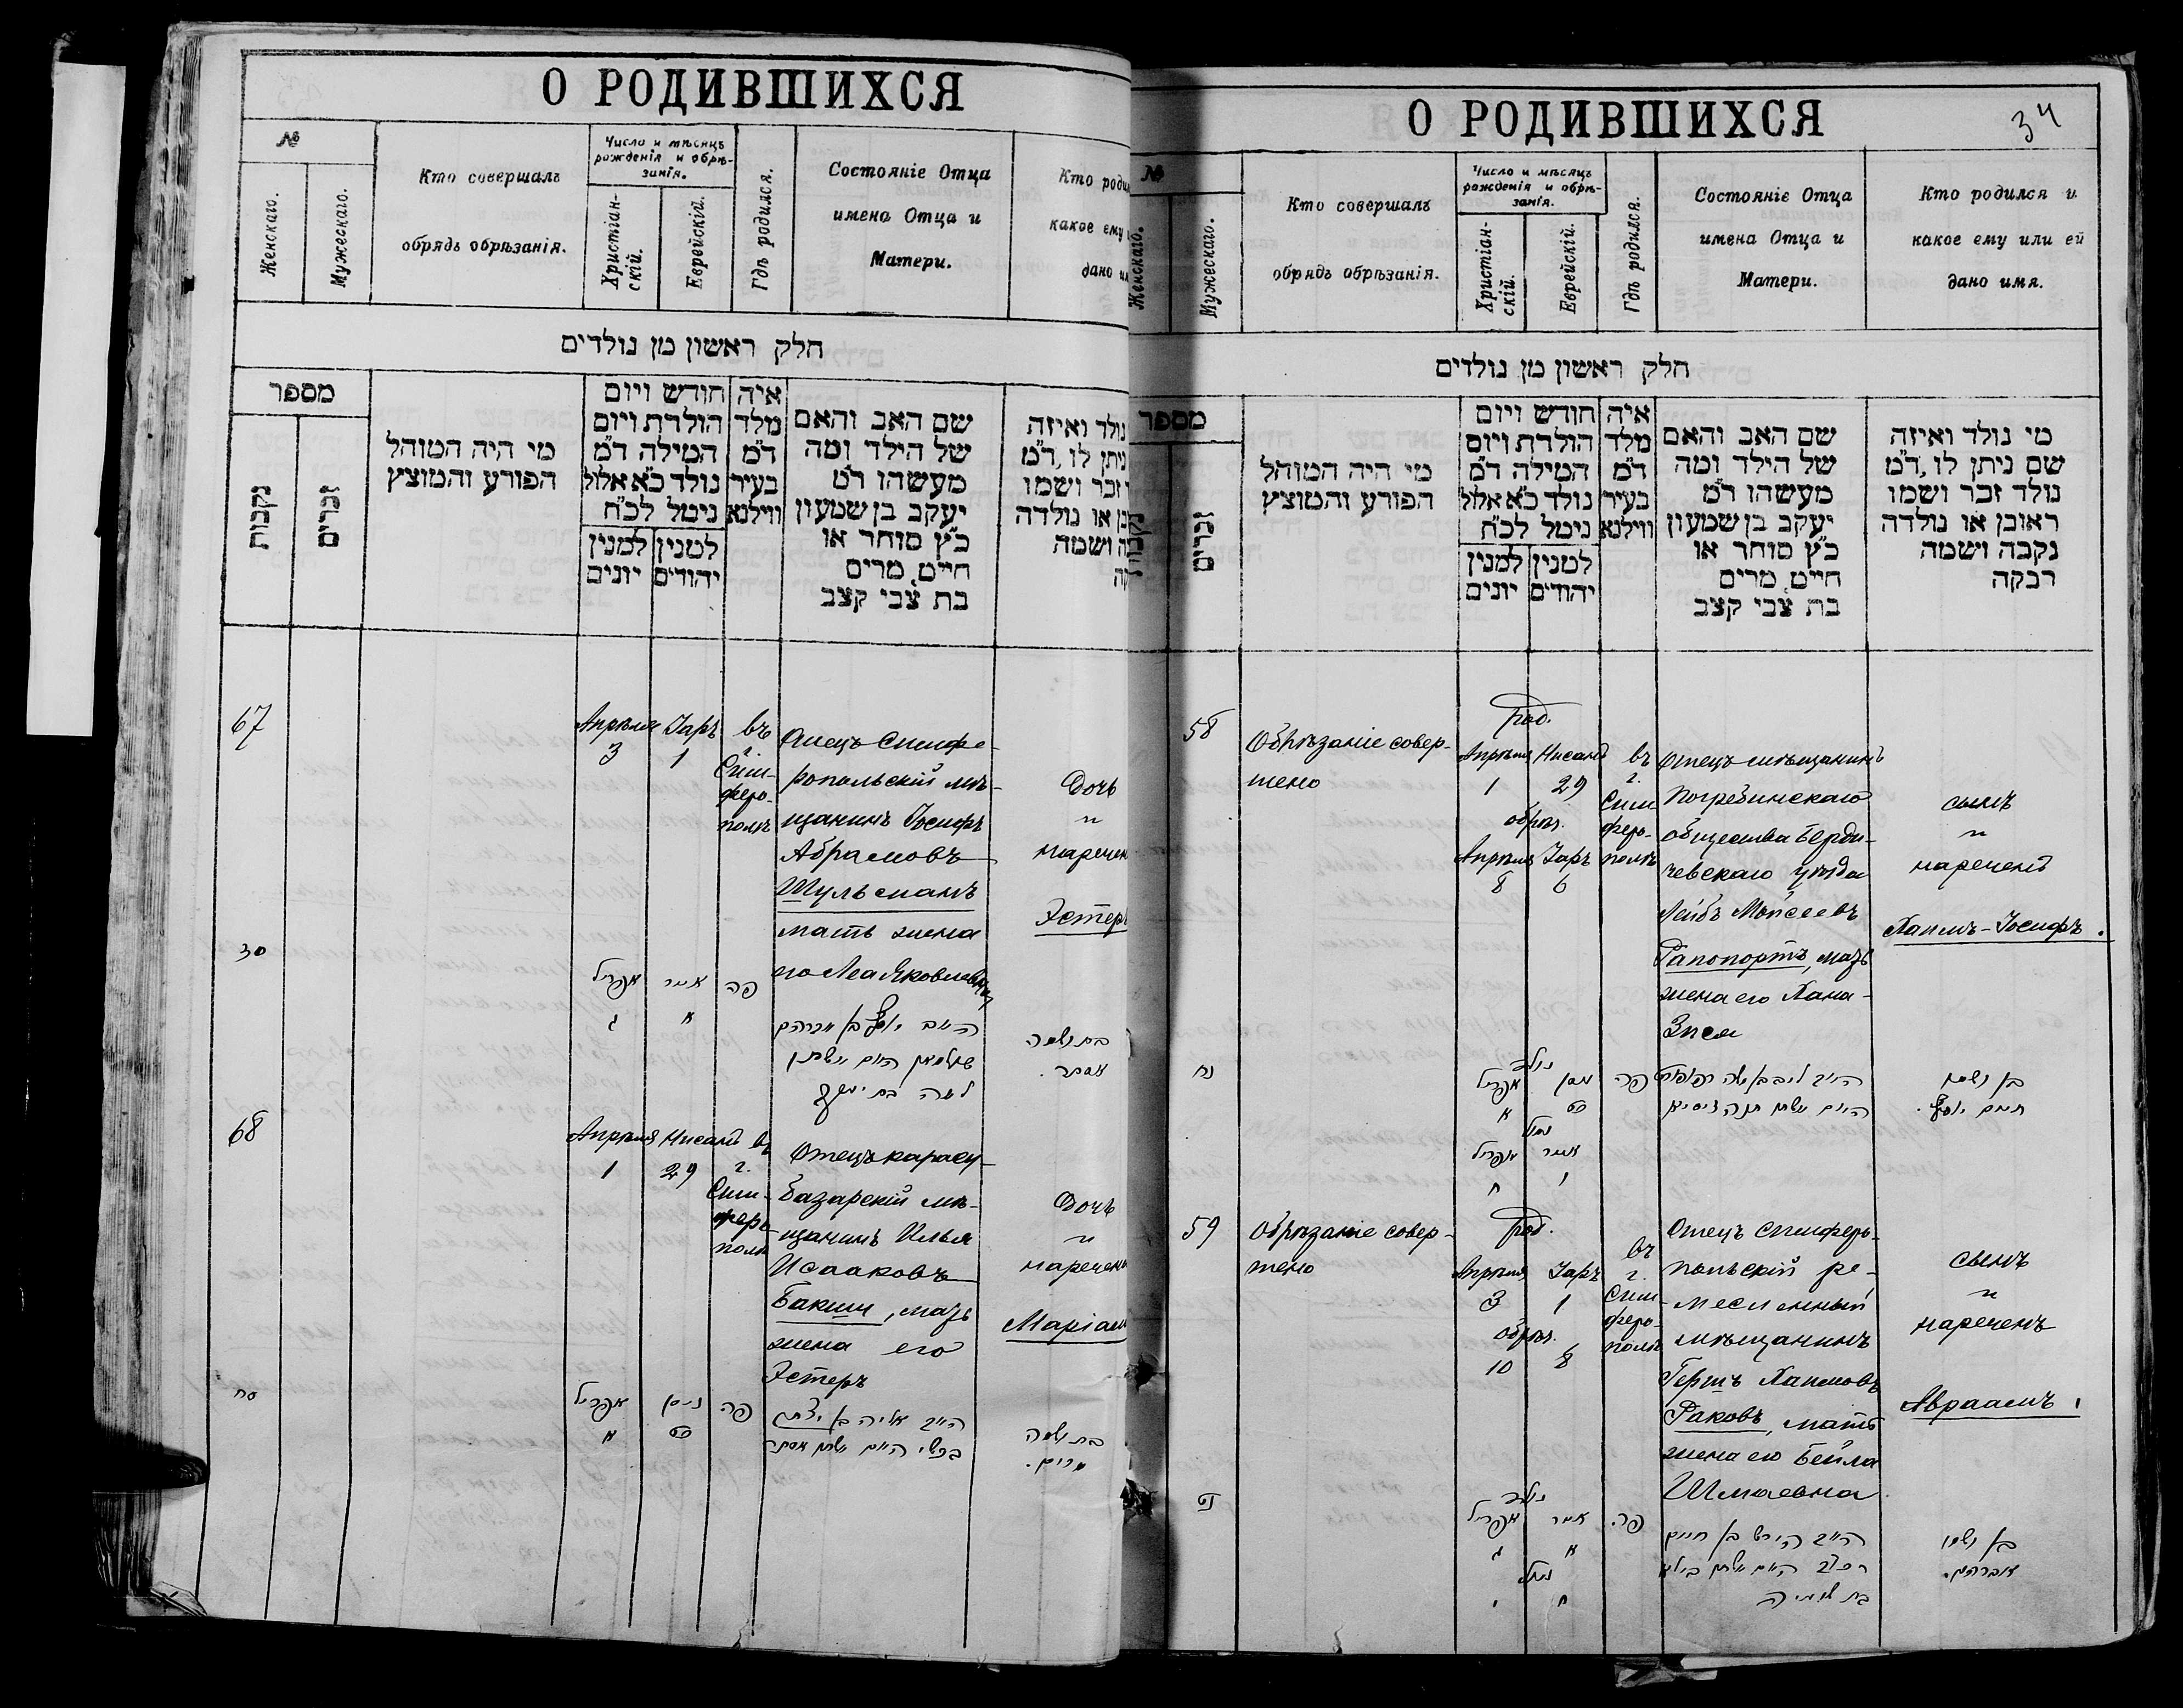 О РОДИВШИХСЯ
№
Женскаго.
Мужескаго.
Кто совершалъ
обрядъ обрѣзанія.
Число и мѣсяцъ
рожденія и обрѣ-
занія.
Христіан-
скій.
Еврейскій.
Гдѣ родился.
Состояніе Отца
имена Отца и
Матери.
Кто роди
какое ему
дано им
חלק ראשון מן נולדים
מספר
נקבות
זכרים
מי היה המוהל
הפורע והמוצץ
חודש ויום
הולדת ויום
המילה ד״מ
נולד כ״א אלול
נימל לכ״ח
למנין
יונים
למנין
יהודים
איה
מלד
ד״מ
בעיר
ווילנא
שם האב והאם
של הילד ומה
מעשהו ר״מ
יעקב בן שמעון
כ״ץ סוחר או
חייט, מרים
בת צבי קצב
נולד ואיזה
ניתן לו, ד״מ
זכר ושמו
בן או נולדה
ושמה
67
Апрѣля
3
Іаръ
1
въ
г.
Сим-
феро-
полѣ
Отецъ симфе-
ропольскій мѣ-
щанинъ Іосифъ
Абрамовъ
Шульманъ
мать жена
его Лея Яковлевна
Дочь
и
наречен
Эстеръ
אפריל
ג
אייר
א
פה
בת ושמה
אסתר.
68
Апрѣля
1
Нисанъ
29
въ
г.
Сим-
феро-
полѣ
Отецъ карасу-
базарскій мѣ-
щанинъ Илья
Исааковъ
Бакши, мать
жена его
Эстеръ
Дочь
и
наречена
Маріам
סח
אפריל
א
ניסן
כט
פה
הא״ב אליה בן יצחק
בכשי האם אשתו אסתר
בת ושמה
מרים.
О РОДИВШИХСЯ
34
№
Женскаго.
Мужескаго.
Кто совершалъ
обрядъ обрѣзанія.
Число и мѣсяцъ
рожденія и обрѣ-
занія.
Христіан-
скій.
Еврейскій.
Гдѣ родился.
Состояніе Отца
имена Отца и
Матери.
Кто родился и
какое ему или ей
дано имя.
חלק ראשון מן נולדים
מספר
זכרים
מי היה המוהל
הפורע והמוצץ
חודש ויום
הולדת ויום
המילה ד״מ
נולד כ״א אלול
נימל לכ״ח
למנין
יונים
למנין
יהודים
איה
מלד
ד״מ
בעיר
ווילנא
שם האב והאם
של הילד ומה
מעשהו ר״מ
יעקב בן שמעון
כ״ץ סוחר או
חייט, מרים
בת צבי קצב
מי נולד ואיזה
שם ניתן לו, ד״מ
נולד זכר ושמו
ראובן או נולדה
נקבה ושמה
רבקה
58
Обрѣзаніе совер-
шено
род.
Апрѣля
1
Нисанъ
29
обрѣз.
Апрѣля
8
Іаръ
6
въ
г.
Сим-
феро-
полѣ
Отецъ мѣщанинъ
Погребинскаго
общества Берди-
чевскаго уѣзда
Лейбъ Мойсеевъ
Рапопортъ, мать
жена его Хана-
Зися
сынъ
и
нареченъ
Хаимъ-Іосифъ.
נח
נולד
אפריל
א
ניסן
כט
נימול
אפריל
ח
אייר
ו
פה
בן ושמו
חיים יוסף.
59
Обрѣзаніе совер-
шено
род.
Апрѣля
3
Іаръ
1
обрѣз.
10
8
въ
г.
Сим-
феро-
полѣ
Отецъ симферо-
польскій ре-
месленный
мѣщанинъ
Гершъ Хаимовъ
Раковъ, мать
жена его Бейла
Шмаевна
сынъ
и
нареченъ
Авраамъ.
נט
נולד
אפריל
ג
אייר
א
נימול
י
ח
פה
בן ושמו
אברהם.